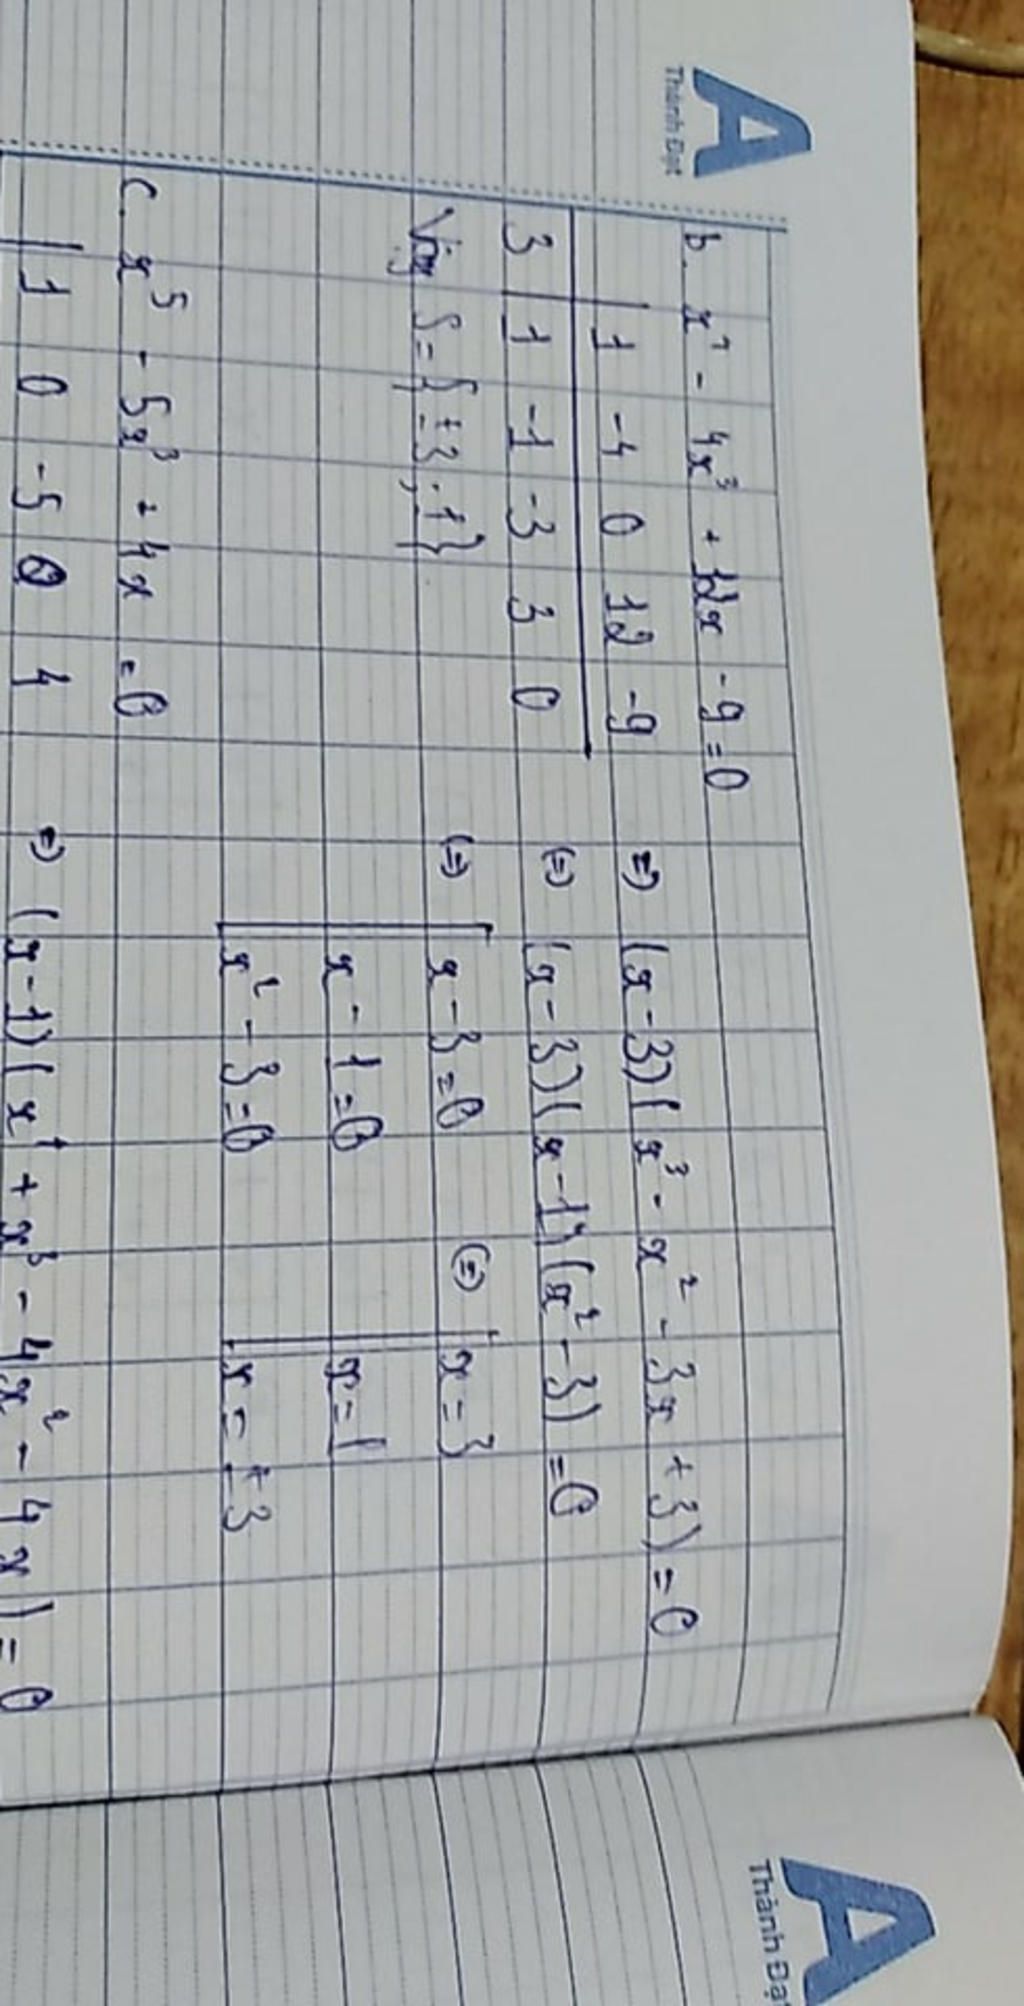 A
Thành Đạt
b. x⁴ - 4x³ + 12x - 9 = 0
1 -4 0 12 -9
3 1 -1 -3 3 0
=> (x-3)(x³ - x² - 3x + 3) = 0
(=) (x-3)(x-1)(x² - 3) = 0
(=) x - 3 = 0 (=) x = 3
x - 1 = 0 x = 1
x² - 3 = 0 x = ±3
Vậy S = {±3; 1}
c. x⁵ - 5x³ + 4x = 0
1 0 -5 0 4
=> (x-1)(x⁴ + x³ - 4x² - 4x) = 0
A
Thành Đạt